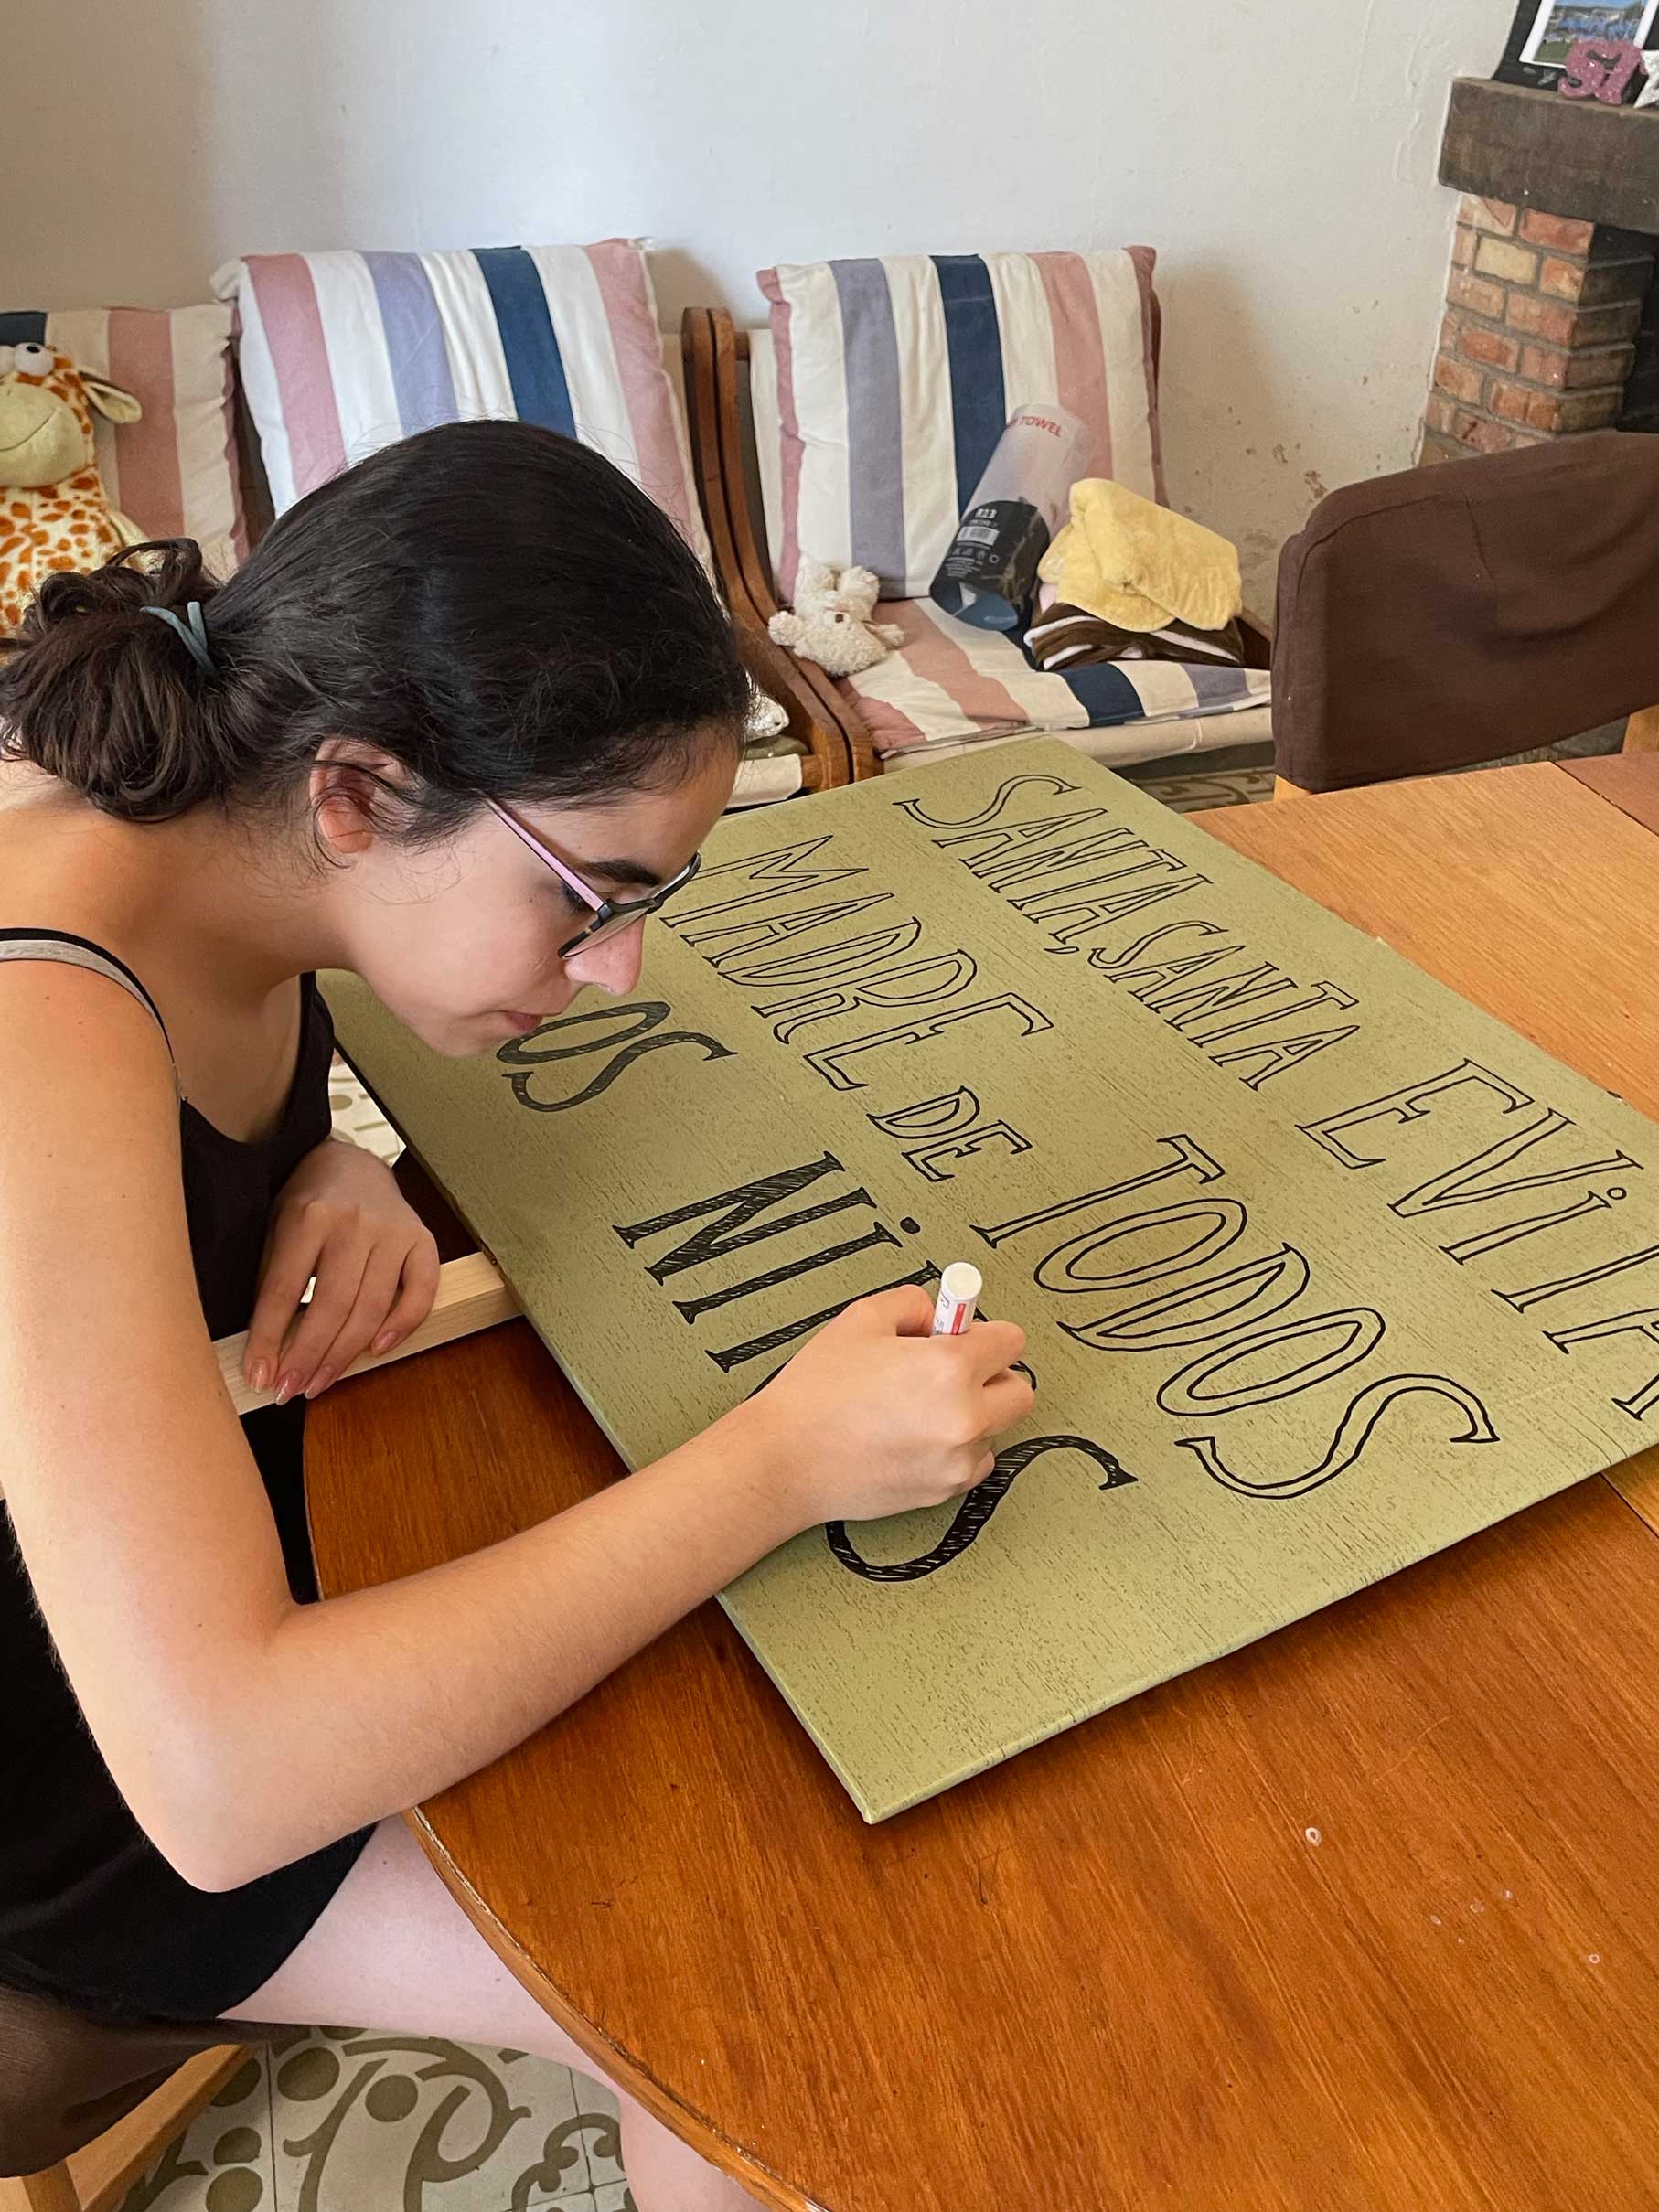 SANTA, SANTA EViTA
MADRE DE TODOS
OS NiÑOS
TOWEL
R13